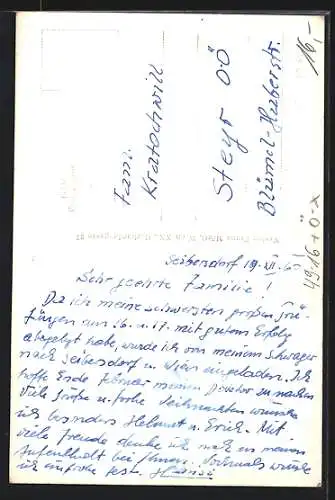 Fam.
Kratochwill
Steyr OÖ
Blümel-Huberstr.
16,-
Seibersdorf 19. XII. 60
Sehr geehrte Familie!
Da ich meine schwersten großen Prü-
fungen am 16. u. 17. mit gutem Erfolg
abgelegt habe, wurde ich von meinem Schwager
nach Seibersdorf u. Wien eingeladen. Ich
hoffe Ende Februar meinen Doktor zu machen
Viele Grüße u. frohe Weihnachten wünsche
ich besonders Helmut u. Erich. Mit
viel Freude denke ich noch an meinen
Aufenthalt bei Ihnen. Nochmals wünsche
ich ein frohes Fest.